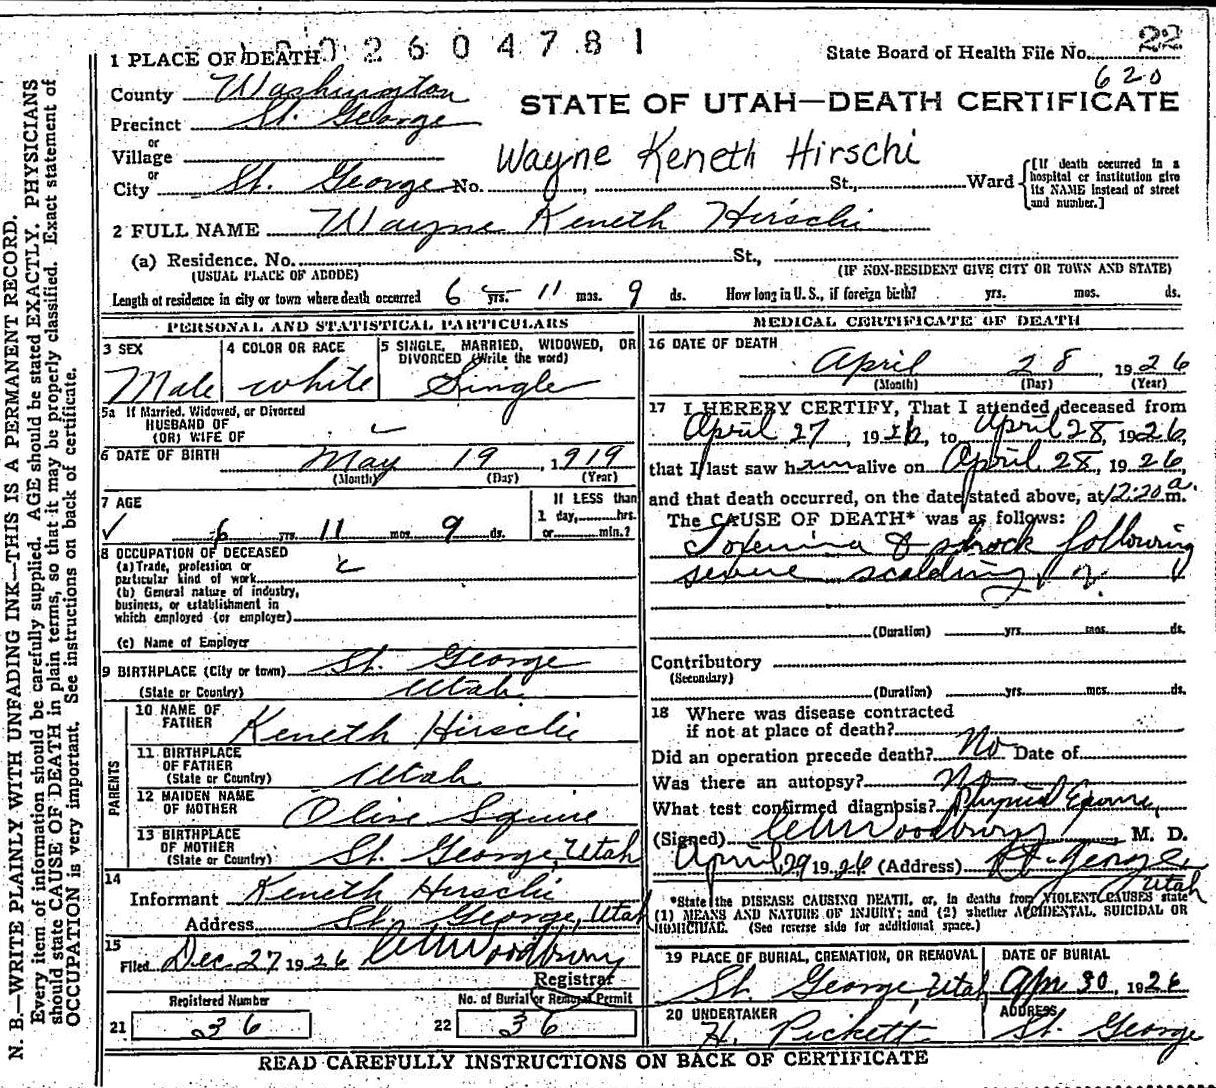 1 PLACE OF DEATH 2604781
State Board of Health File No. 22
620
County Washington
STATE OF UTAH—DEATH CERTIFICATE
Precinct St. George
or
Village
Wayne Keneth Hirschi
or
City St. George No. , St., Ward
[If death occurred in a hospital or institution give its NAME instead of street and number.]
2 FULL NAME Wayne Keneth Hirschi
(a) Residence. No. St.,
(USUAL PLACE OF ABODE) (IF NON-RESIDENT GIVE CITY OR TOWN AND STATE)
Length of residence in city or town where death occurred 6 yrs. 11 mos. 9 ds. How long in U. S., if foreign birth? yrs. mos. ds.
PERSONAL AND STATISTICAL PARTICULARS
3 SEX
Male
4 COLOR OR RACE
white
5 SINGLE, MARRIED, WIDOWED, OR
DIVORCED (Write the word)
Single
5a If Married, Widowed, or Divorced
HUSBAND OF
(OR) WIFE OF
6 DATE OF BIRTH May 19, 1919
(Month) (Day) (Year)
7 AGE
6 yrs. 11 mos. 9 ds.
If LESS than
1 day, hrs.
or min.?
8 OCCUPATION OF DECEASED
(a) Trade, profession or
particular kind of work
(b) General nature of industry,
business, or establishment in
which employed (or employer)
(c) Name of Employer
9 BIRTHPLACE (City or town) St. George
(State or Country) Utah
PARENTS
10 NAME OF
FATHER Keneth Hirschi
11 BIRTHPLACE
OF FATHER
(State or Country) Utah
12 MAIDEN NAME
OF MOTHER Olive Squire
13 BIRTHPLACE
OF MOTHER
(State or Country) St. George, Utah
14
Informant Keneth Hirschi
Address St. George, Utah
15
Filed Dec. 27 1926 Woodbury
Registrar
Registered Number
21 36
No. of Burial or Removal Permit
22 36
MEDICAL CERTIFICATE OF DEATH
16 DATE OF DEATH
April 28, 1926
(Month) (Day) (Year)
17 I HEREBY CERTIFY, That I attended deceased from
April 27, 1926, to April 28, 1926,
that I last saw him alive on April 28, 1926,
and that death occurred, on the date stated above, at 12:20 a. m.
The CAUSE OF DEATH* was as follows:
Toxemia & shock following
severe scalding
(Duration) yrs. mos. ds.
Contributory
(Secondary)
(Duration) yrs. mos. ds.
18 Where was disease contracted
if not at place of death?
Did an operation precede death? No Date of
Was there an autopsy? No
What test confirmed diagnosis? Physical
(Signed) Woodbury, M. D.
April 29 1926 (Address) St. George
Utah
*State the DISEASE CAUSING DEATH, or, in deaths from VIOLENT CAUSES state
(1) MEANS AND NATURE OF INJURY; and (2) whether ACCIDENTAL, SUICIDAL OR
HOMICIDAL. (See reverse side for additional space.)
19 PLACE OF BURIAL, CREMATION, OR REMOVAL
St. George, Utah
DATE OF BURIAL
Apr 30, 1926
20 UNDERTAKER
H. Pickett
ADDRESS
St. George
READ CAREFULLY INSTRUCTIONS ON BACK OF CERTIFICATE
N. B.—WRITE PLAINLY WITH UNFADING INK—THIS IS A PERMANENT RECORD.
Every item of information should be carefully supplied. AGE should be stated EXACTLY. PHYSICIANS
should state CAUSE OF DEATH in plain terms, so that it may be properly classified. Exact statement of
OCCUPATION is very important. See instructions on back of certificate.